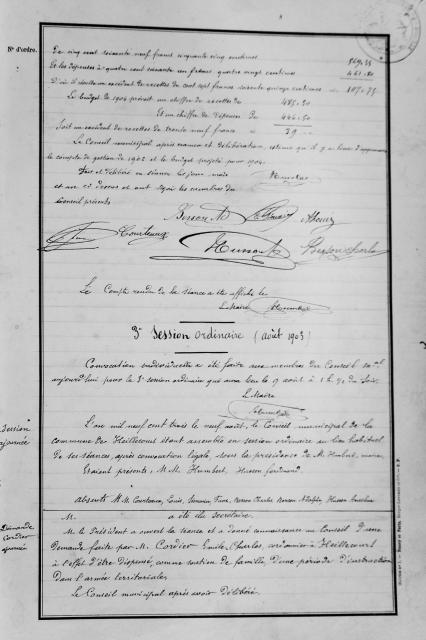 N° d'ordre.
De cinq cent soixante neuf francs cinquante cinq centimes 569.55
Et les dépenses à quatre cent soixante un francs quatre vingt centimes 461.80
D'où il résulte un excédent de recettes de cent sept francs soixante quinze centimes 107.75
Le budget de 1904 prévoit un chiffre de recettes de 485.50
Et un chiffre de dépenses de 446.50
Soit un excédent de recettes de trente neuf francs 39
Le Conseil municipal après examen et délibération, estime qu'il y a lieu d'approuver
le compte de gestion de 1902 et le budget projeté pour 1904.
Fait et délibéré en séance les jour, mois
et an ci dessus et ont signé les membres du
Conseil présents
Le Compte rendu de la séance a été affiché le
Le Maire
3e Session ordinaire (août 1903)
Convocation individuelle a été faite aux membres du Conseil mal
aujourd'hui pour la 3e session ordinaire qui aura lieu le 9 août à 1 h. 1/2 du soir.
Le Maire
Session
ajournée
L'an mil neuf cent trois le neuf août, le Conseil municipal de la
commune de Heillecourt étant assemblé en session ordinaire au lieu habituel
de ses séances, après convocation légale, sous la présidence de M. Humbert, maire,
Étaient présents, M.M. Humbert, Husson Ferdinand.
absents M.M. Courteaux, Louis, Husson
M. a été élu secrétaire.
Demande
Cordier
ajournée
M. le Président a ouvert la séance et a donné connaissance au Conseil d'une
demande faite par M. Cordier Emile, Charles, cordonnier à Heillecourt
à l'effet d'être dispensé, comme soutien de famille, d'une période d'instruction
dans l'armée territoriale.
Le Conseil municipal après avoir délibéré.